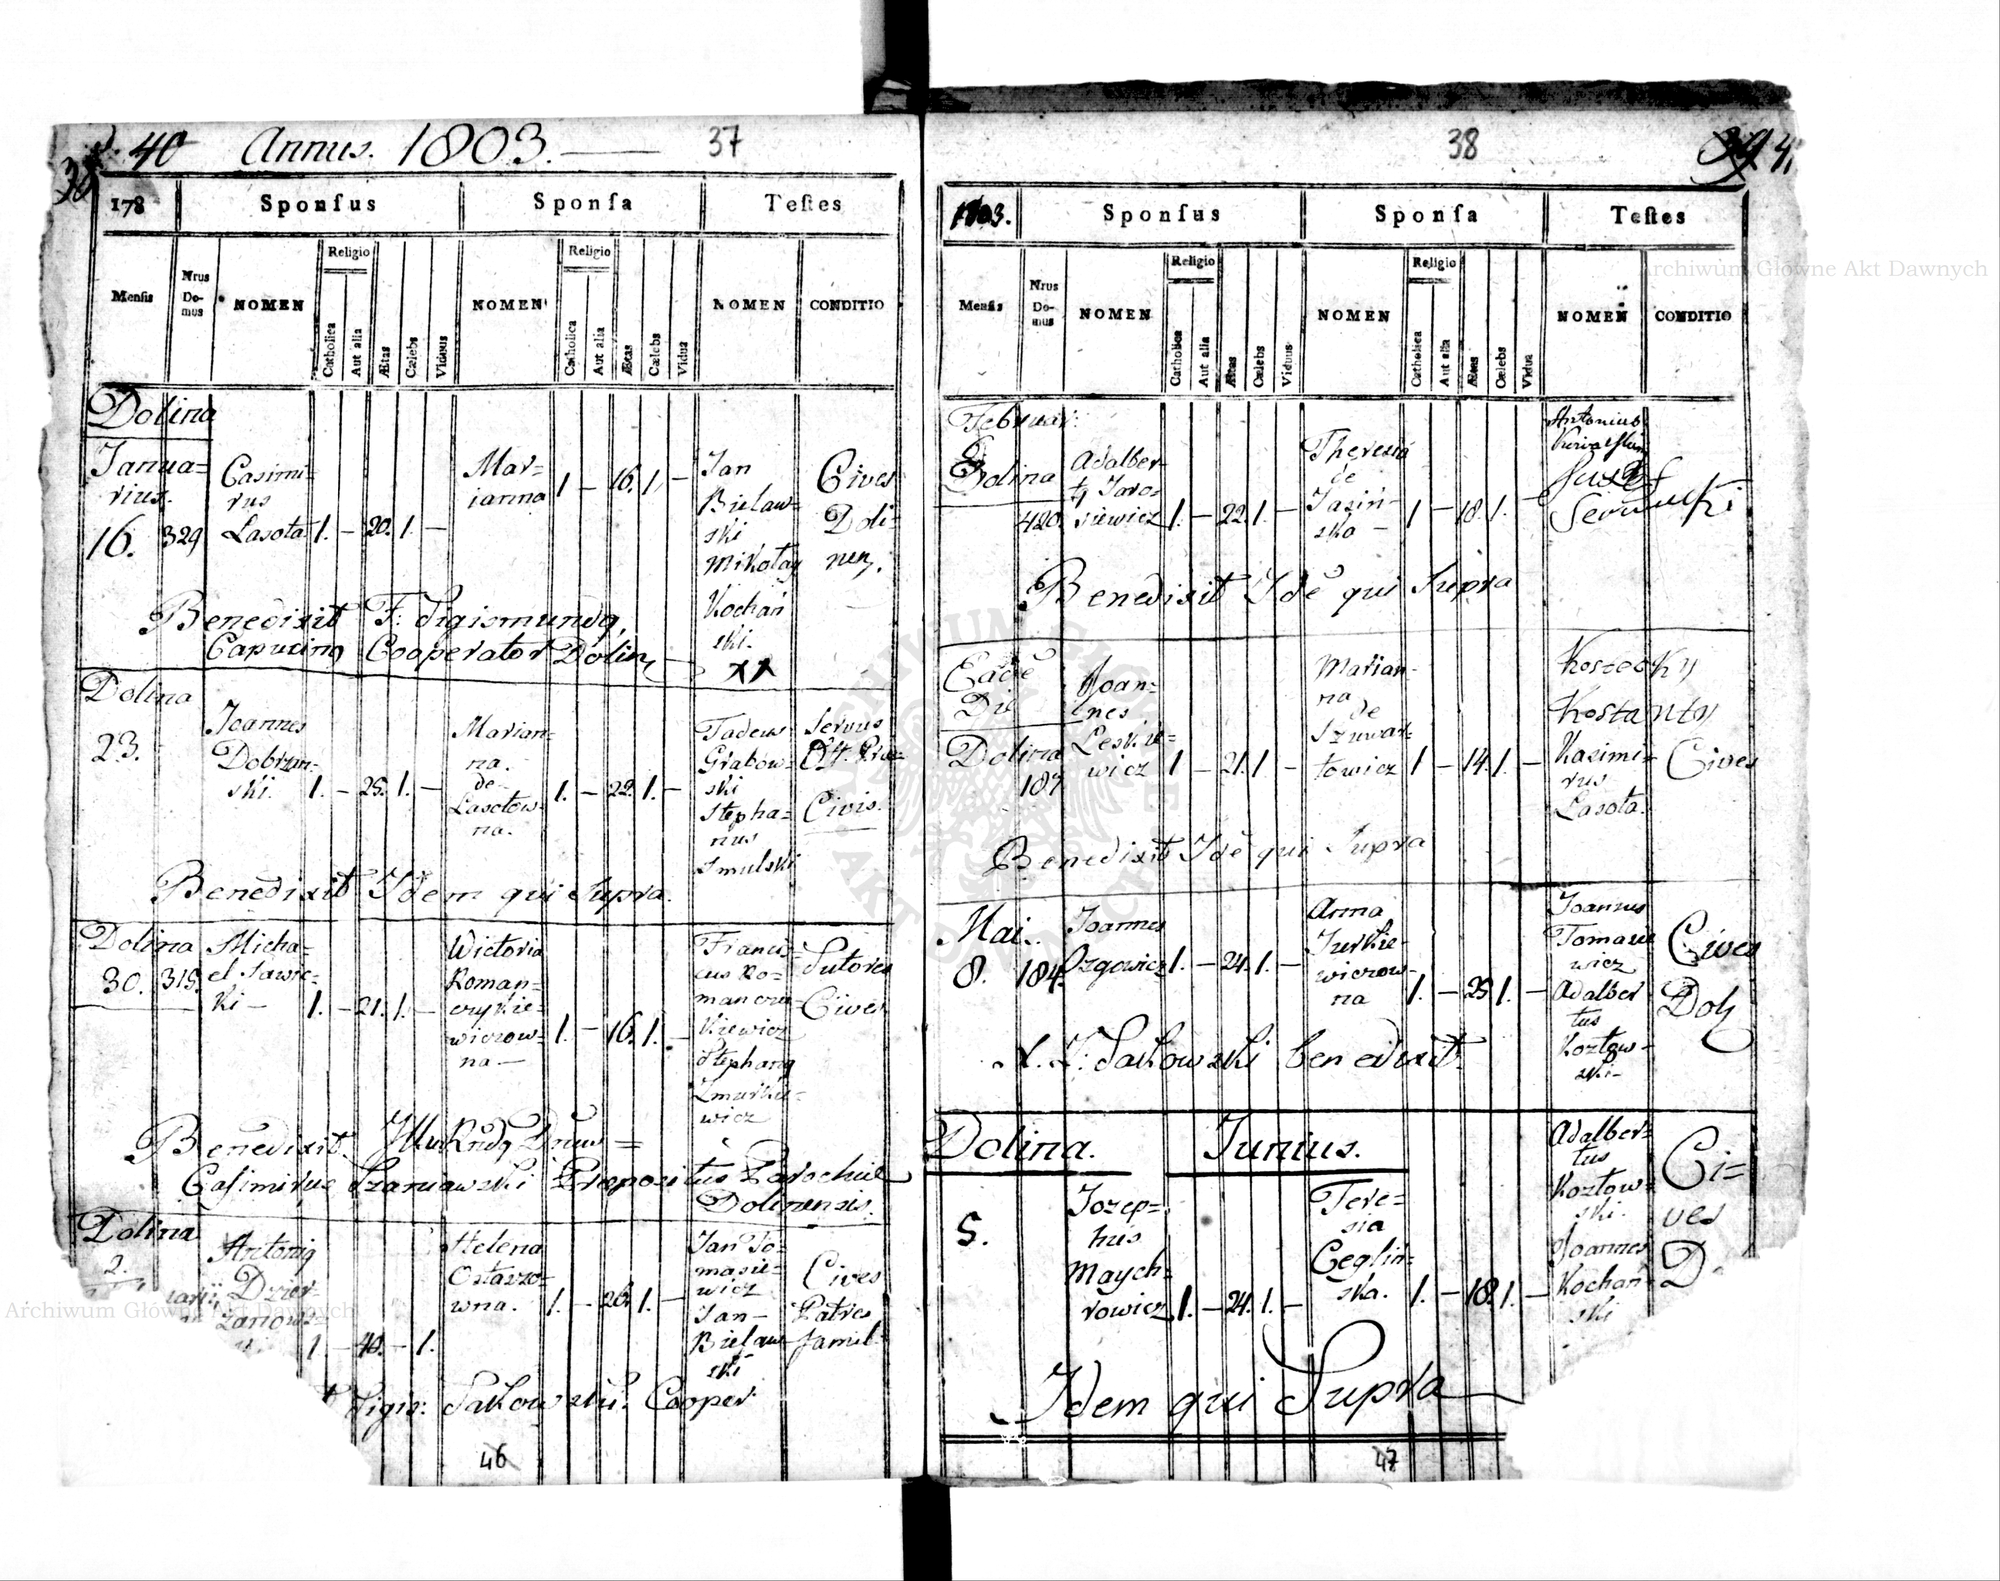 40 Annus. 1803. 37
178 Sponsus Sponsa Testes
Mensis Nrus Domus NOMEN Religio Catholica Aut alia Ætas Cælebs Viduus NOMEN Religio Catholica Aut alia Ætas Cælebs Vidua NOMEN CONDITIO
Dolina
Janua=
rius.
16. 329
Casimi=
rus
Lasota 1. – 20. 1. –
Mar=
ianna 1 – 16. 1. –
Jan
Bielaw=
ski
Mikołay
Kochań
ski.
Cives
Doli=
nen.
Benedixit F. Sigismundq,
Capucinq Cooperator Dolin
Dolina
23.
Joannes
Dobrzan=
ski. 1. – 25. 1. –
Marian=
na.
de
Lasotow=
na. 1. – 22. 1. –
Tadeus
Grabow=
ski
Stepha=
nus
Smulski
Servus
Civis.
Benedixit Idem qui Supra.
Dolina
30. 319.
Micha=
el Sawic=
ki – 1. – 21. 1. –
Wictoria
Roman=
czykie=
wiczow=
na – 1. – 16. 1. –
Francis=
cus Ro=
mancza=
kiewicz
Stephanq
Zmurkie=
wicz
Sutores
Cives
Benedixit.
Casimirus Szaniawski Præpositus Parochiæ
Dolinensis.
Dolina
2.
Antoniq
Dzier=
zanows=
1 – 40. – 1.
Helena
Ostaszo=
wna. 1. – 26. 1. –
Jan To=
masie=
wicz
Jan –
Bielaw
ski
Cives
Patres
famil=
Sigis: Sakowski. Cooper
46
38
1803. Sponsus Sponsa Testes
Mensis Nrus Domus NOMEN Religio Catholica Aut alia Ætas Cælebs Viduus NOMEN Religio Catholica Aut alia Ætas Cælebs Vidua NOMEN CONDITIO
Februar:
Dolina
420.
Adalber=
tq Jaro=
siewicz 1. – 22. 1. –
Theresia
de
Jasiń=
ska – 1 – 18. 1. –
Antonius
Benedixit Idē qui Supra
Eadē
Die
Dolina
187
Joan=
nes
Leskie=
wicz 1 – 21. 1. –
Marian=
na
de
Szuwar=
towicz 1 – 14. 1. –
Koszecky
Kostanty
Kazimi=
rus
Lasota.
Cives
Benedixit Idē qui Supra
Mai.
8. 184.
Joannes
Ozgowicz 1. – 24. 1. –
Anna
Jurkie=
wiczow=
na 1. – 25 1. –
Joannes
Tomasie
wicz
Adalber
tus
Kozłow=
ski –
Cives
Dol
Sakowski benedixit.
Dolina. Junius.
5.
Jozep=
hus
Maych=
rowicz 1. – 24. 1. –
Tere=
sia
Cegliń=
ska. 1. – 18. 1. –
Adalber=
tus
Kozłow=
ski.
Joannes
Kochań
ski
Ci=
ves
D
Idem qui Supra
47
Archiwum Główne Akt Dawnych
Archiwum Główne Akt Dawnych
ARCHIWUM GŁÓWNE AKT DAWNYCH